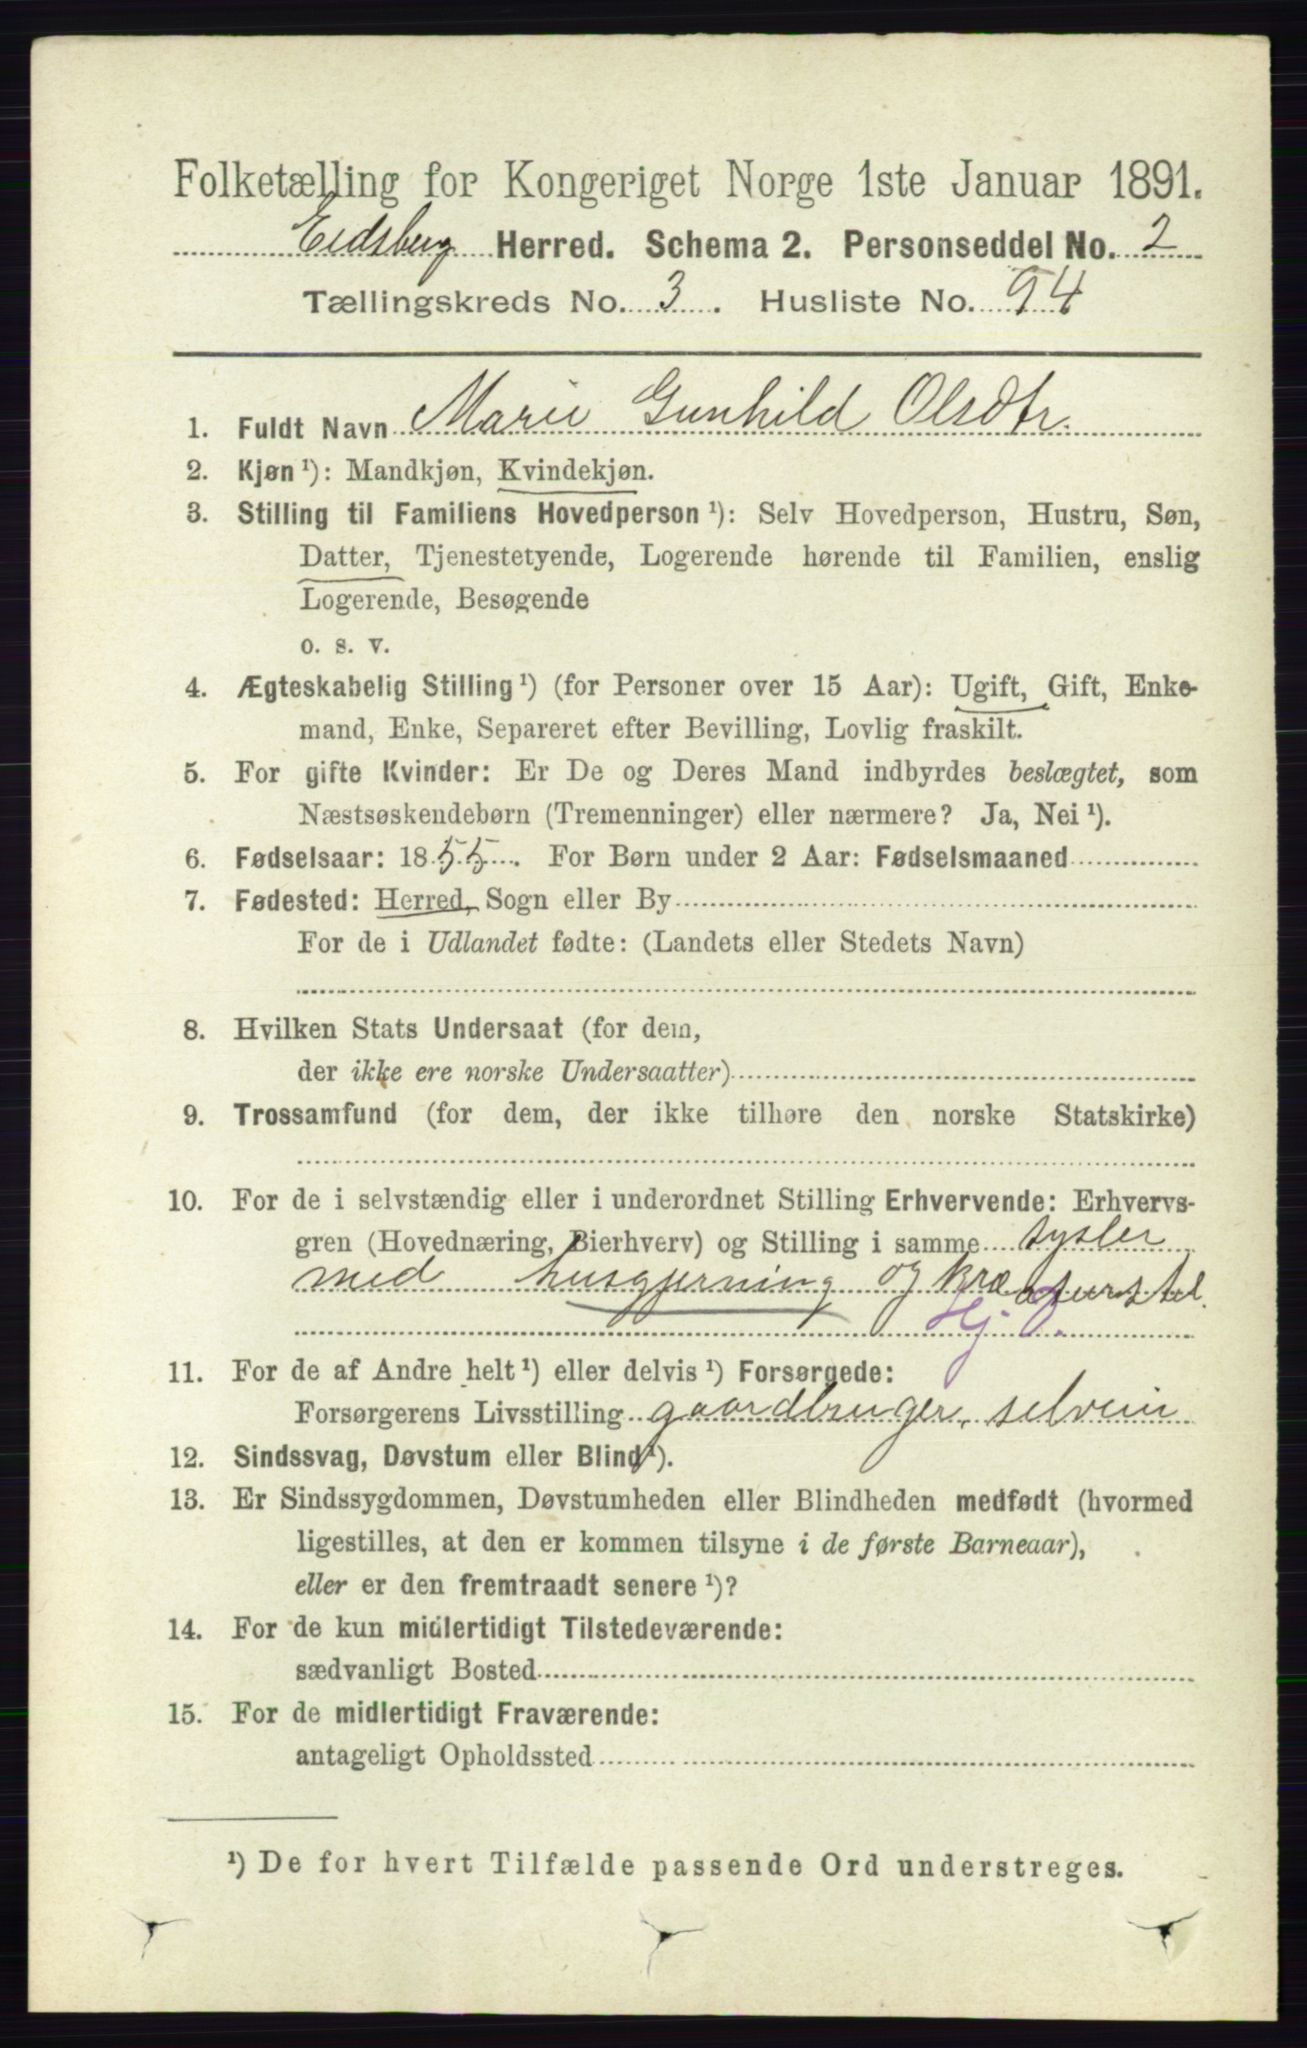 Folketælling for Kongeriget Norge 1ste Januar 1891.
Eidsberg Herred. Schema 2. Personseddel No. 2
Tællingskreds No. 3. Husliste No. 94
1. Fuldt Navn Marie Gunhild Olsdtr.
2. Kjøn ¹): Mandkjøn, Kvindekjøn.
3. Stilling til Familiens Hovedperson ¹): Selv Hovedperson, Hustru, Søn,
Datter, Tjenestetyende, Logerende hørende til Familien, enslig
Logerende, Besøgende
o. s. v.
4. Ægteskabelig Stilling ¹) (for Personer over 15 Aar): Ugift, Gift, Enke-
mand, Enke, Separeret efter Bevilling, Lovlig fraskilt.
5. For gifte Kvinder: Er De og Deres Mand indbyrdes beslægtet, som
Næstsøskendebørn (Tremenninger) eller nærmere? Ja, Nei ¹).
6. Fødselsaar: 1855. For Børn under 2 Aar: Fødselsmaaned
7. Fødested: Herred, Sogn eller By
For de i Udlandet fødte: (Landets eller Stedets Navn)
8. Hvilken Stats Undersaat (for dem,
der ikke ere norske Undersaatter)
9. Trossamfund (for dem, der ikke tilhøre den norske Statskirke)
10. For de i selvstændig eller i underordnet Stilling Erhvervende: Erhvervs-
gren (Hovednæring, Bierhverv) og Stilling i samme sysler
med husgjerning og kræaturstel
11. For de af Andre helt ¹) eller delvis ¹) Forsørgede:
Forsørgerens Livsstilling gaardbruger, selveier
12. Sindssvag, Døvstum eller Blind ¹).
13. Er Sindssygdommen, Døvstumheden eller Blindheden medfødt (hvormed
ligestilles, at den er kommen tilsyne i de første Barneaar),
eller er den fremtraadt senere ¹)?
14. For de kun midlertidigt Tilstedeværende:
sædvanligt Bosted
15. For de midlertidigt Fraværende:
antageligt Opholdssted
¹) De for hvert Tilfælde passende Ord understreges.